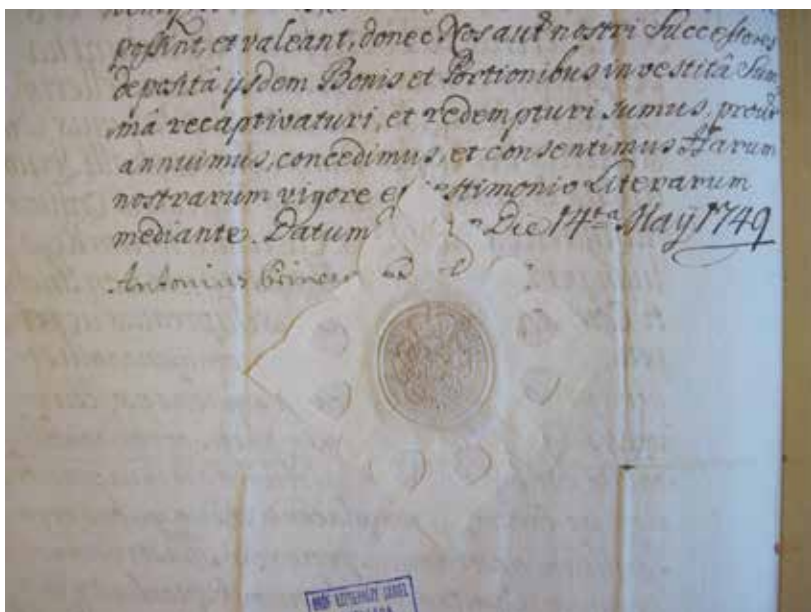 possint, et valeant, donec Nos aut nostri Successores
deposità ijsdem Bonis et Portionibus investità Sum,
,mà recaptivaturi, et redempturi sumus, prout
annuimus, concedimus, et consentimus Harum
nostrarum vigore et Literarum
mediante. Datum Die 14ta Maÿ 1749
Antonius